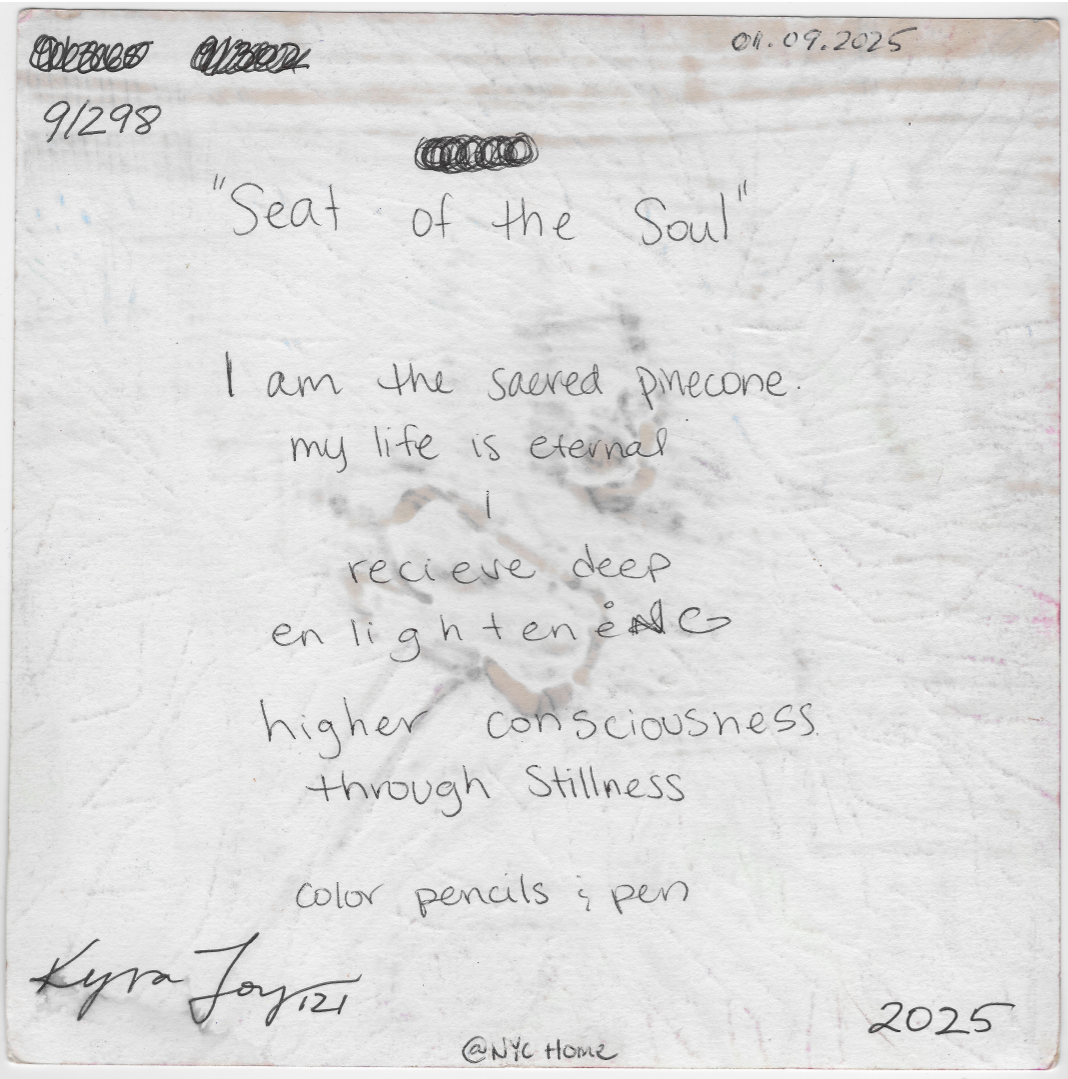 01.09.2025
9/298
"Seat of the Soul"
I am the sacred pinecone.
my life is eternal
I
recieve deep
enlightening
higher consciousness
through Stillness
color pencils & pen
Kyra Joy 121
2025
@NYC Home